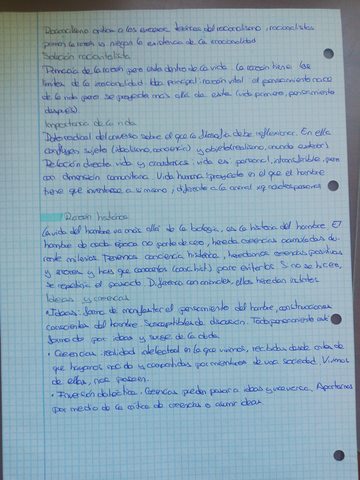 Raciovitalismo critica a los excesos teóricos del racionalismo, racionalistas
ponen la razón y niegan la existencia de la irracionalidad
Solución raciovitalista
Primacía de la razón pero esta dentro de la vida. la razón tiene los
límites de la irracionalidad. Idea principal: razón vital, el pensamiento nace
de la vida pero se proyecta más allá de esta (vida primero, pensamiento
después).
Importancia de la vida
Dato radical del universo sobre el que la filosofía debe reflexionar. En ella
confluyen sujeto (idealismo, conciencia) y objeto (realismo, mundo exterior)
Relación directa vida y circunstancias: vida es personal, intransferible, pero
con dimensión comunitaria. Vida humana: proyecto en el que el hombre
tiene que inventarse a sí mismo; diferente a la animal xq
Razón histórica
La vida del hombre va más allá de la biología, es la historia del hombre. El
hombre de cada época no parte de cero, hereda creencias acumuladas du-
rante milenios. Tenemos conciencia histórica, heredamos creencias positivas
y errores y hay que conocerlos para evitarlos. Si no se hiciera,
se repetiría el pasado. Diferencia con animales, ellos heredan instintos.
Ideas y creencias
• Ideas: forma de manifestar el pensamiento del hombre, construcciones
conscientes del hombre. Susceptibles de discusión. Todo pensamiento está
formado por ideas y surge de la duda.
• Creencias: realidad intelectual en la que vivimos, recibidas desde antes de
que hagamos uso de y compartidas por miembros de una sociedad. Vivimos
de ellas, nos poseen.
• Inversión dialéctica: Creencias pueden pasar a ideas y viceversa.
por medio de la crítica de creencias o asumir ideas.